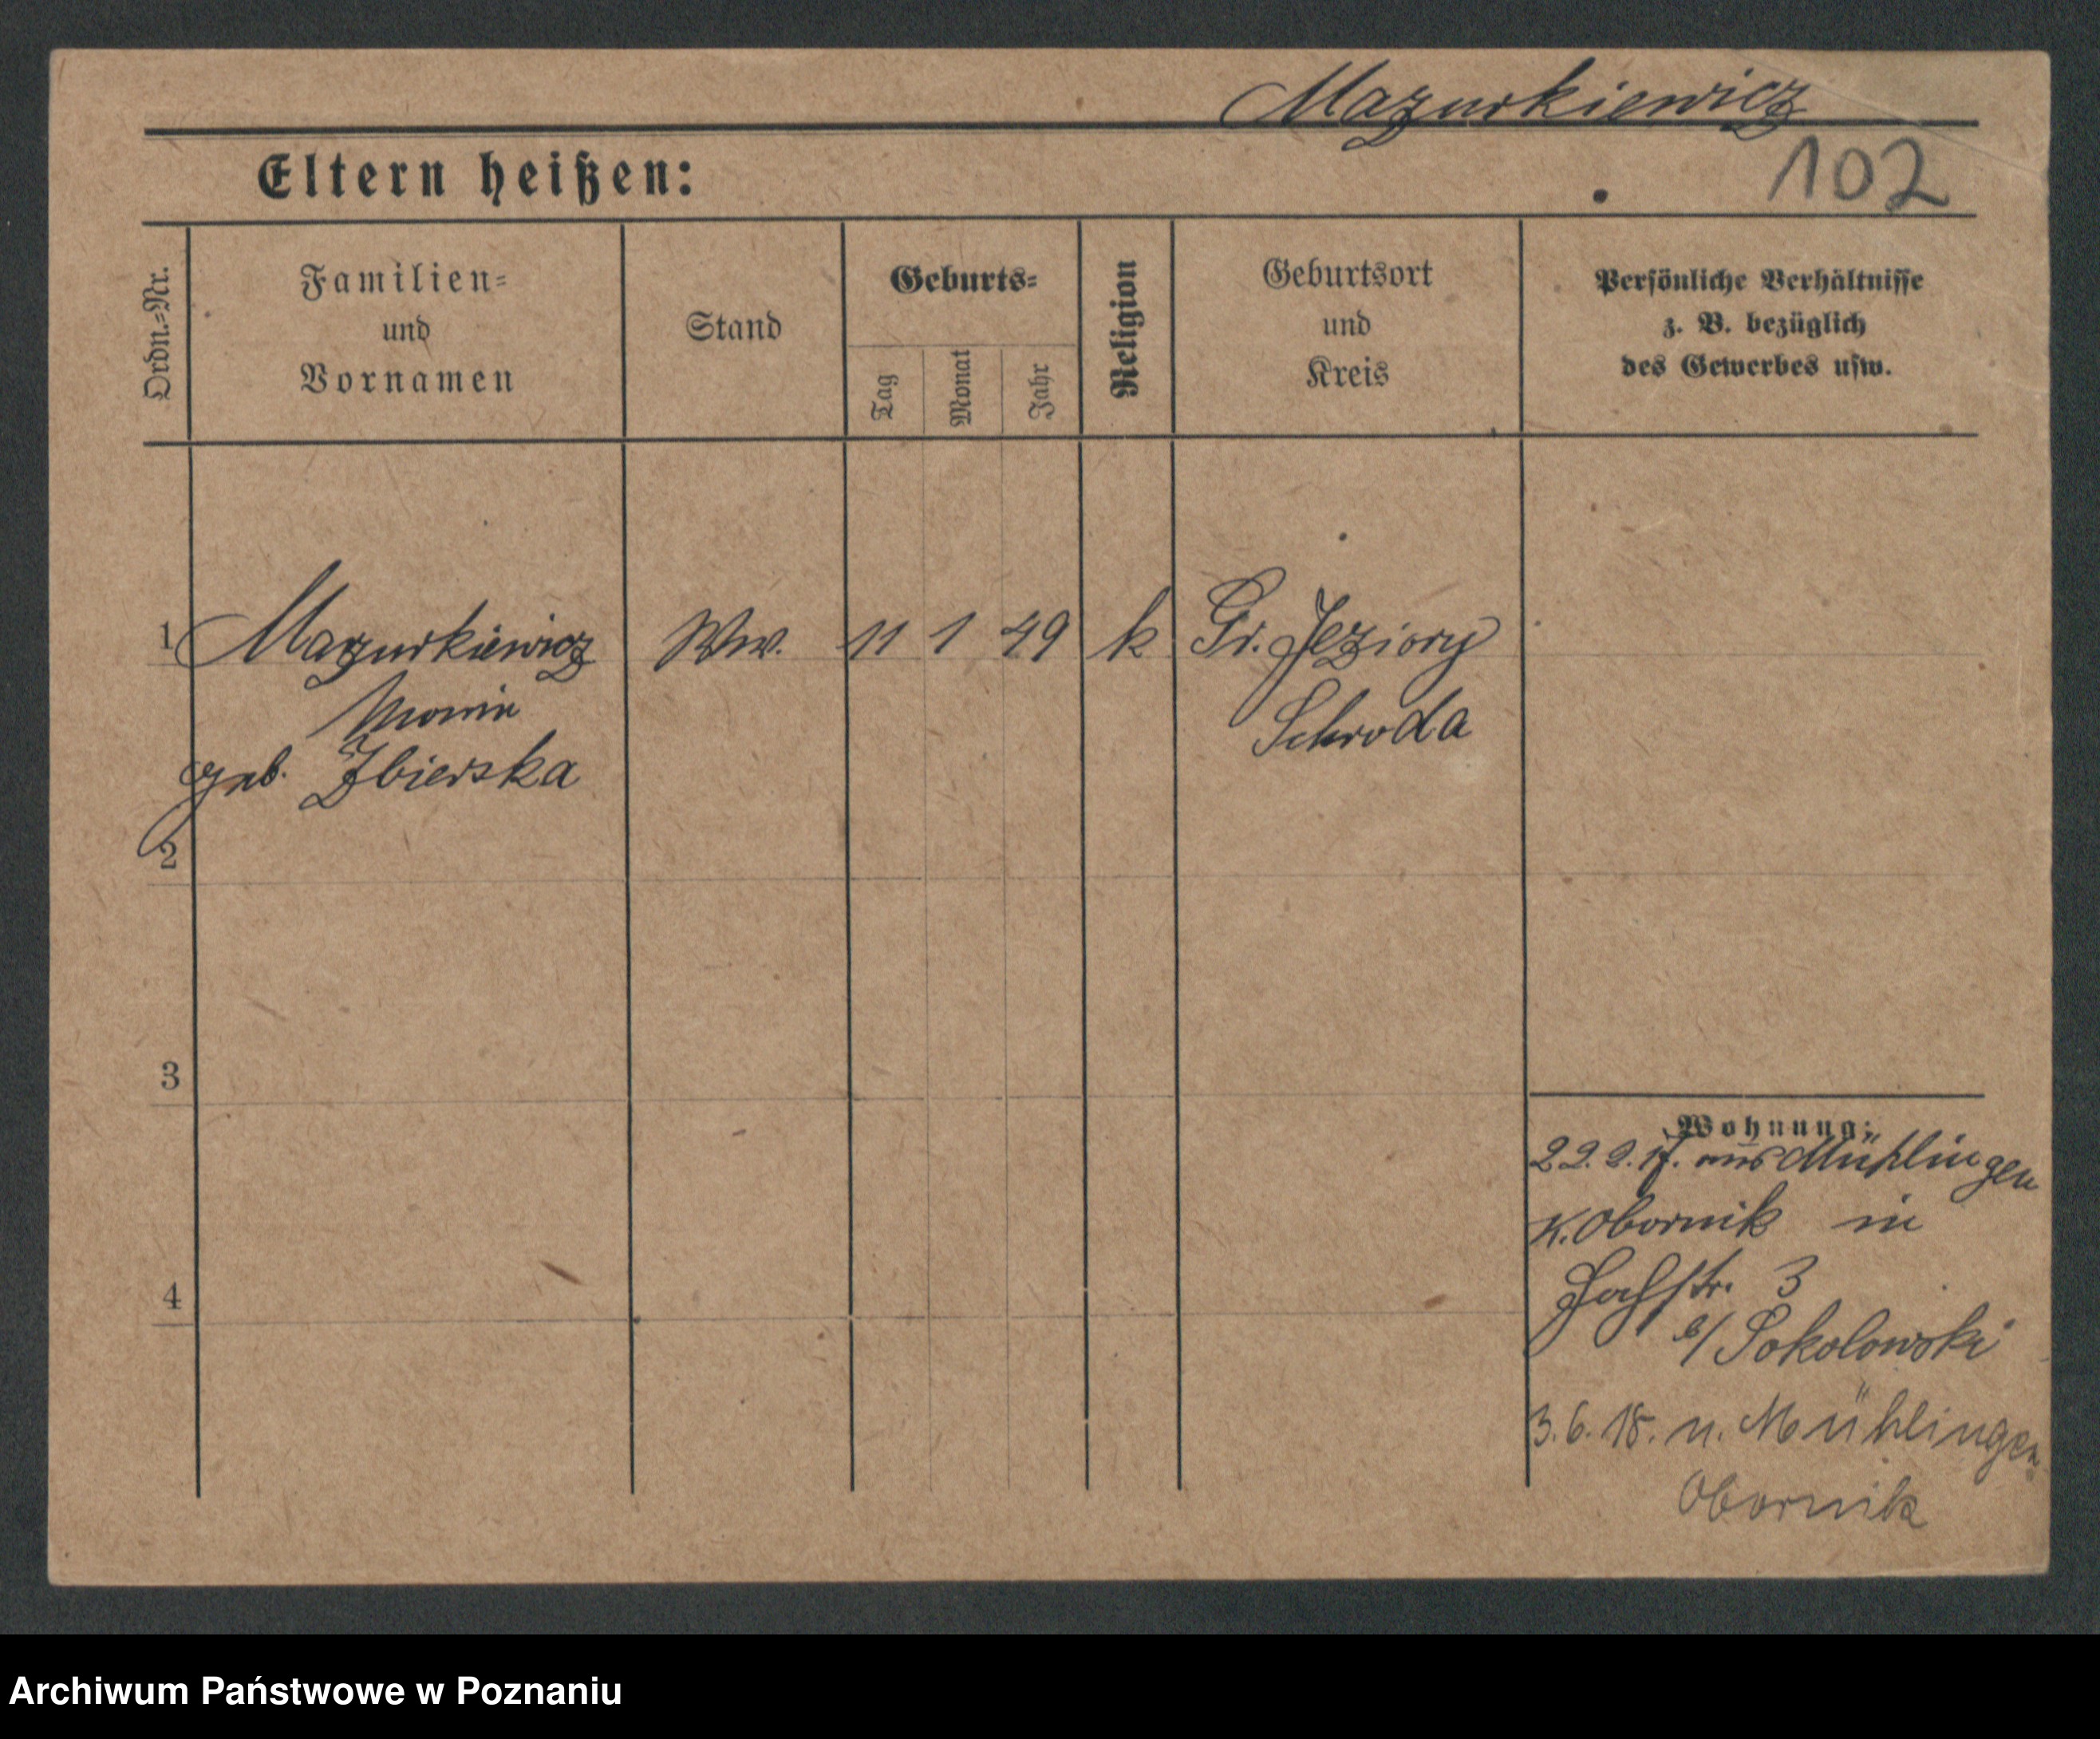 Mazurkiewicz
102
Eltern heißen:
Ordn.=Nr.
Familien=
und
Vornamen
Stand
Geburts=
Tag
Monat
Jahr
Religion
Geburtsort
und
Kreis
Persönliche Verhältnisse
z. B. bezüglich
des Gewerbes usw.
1 Mazurkiewicz Ww. 11 1 49 k Gr. Jeziory
Maria Schroda
geb. Zbierska
2
3
4
Wohnung:
22.2.17. aus Mühlingen
K. Obornik in
Hochstr. 3
b/ Sokolowski
3.6.18. n. Mühlingen
Obornik
Archiwum Państwowe w Poznaniu